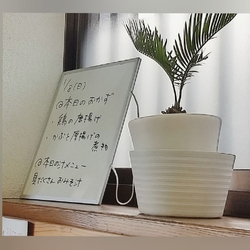 1/8(日)
@本日のおかず
・鶏の唐揚げ
・かぶと厚揚げの
煮物
@本日のナメニュー
具だくさんおみそ汁